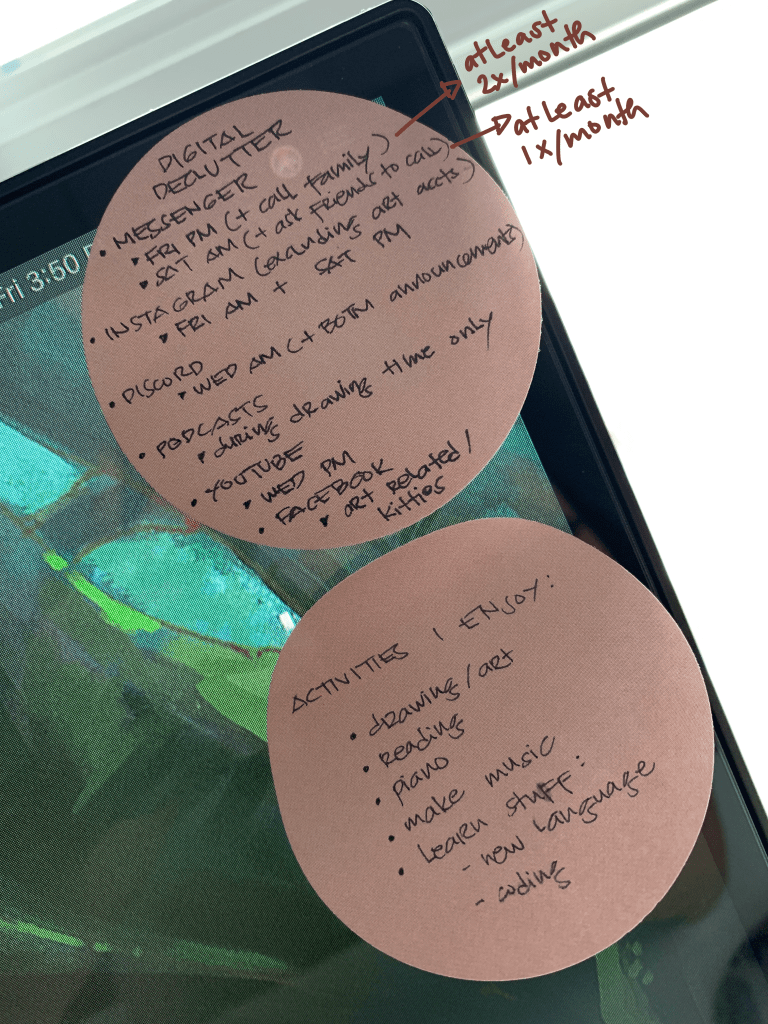 at least
2x/month
at least
1x/month
DIGITAL
DECLUTTER
• MESSENGER
• FRI PM (+ call family)
• SAT AM (+ ask friends to call)
• INSTAGRAM (excluding art accts.)
• FRI AM + SAT PM
• DISCORD
• WED AM (+ BOTM announcements)
• PODCASTS
• during drawing time only
• YOUTUBE
• WED PM
• FACEBOOK
• art related/
kitties
Fri 3:50
ACTIVITIES I ENJOY:
• drawing/art
• reading
• piano
• make music
• Learn stuff:
- new language
- coding